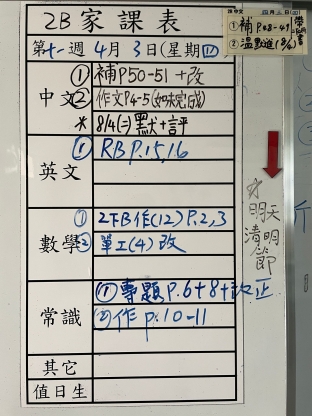 2B家課表
第十一週 4月3日(星期四)
中文
① 補P.50-51 +改
② 作文P.4-5(如未完成)
* 8/4(二)默+評
英文
① RB P.15,16
數學
① 2下B作(12) P.2,3
② 單工(4) 改
常識
① 專題P.6+8+改正
② 作 p.10-11
其它
值日生
① 補P.48-49
② 溫默進(8/4)
*
明天
清明節